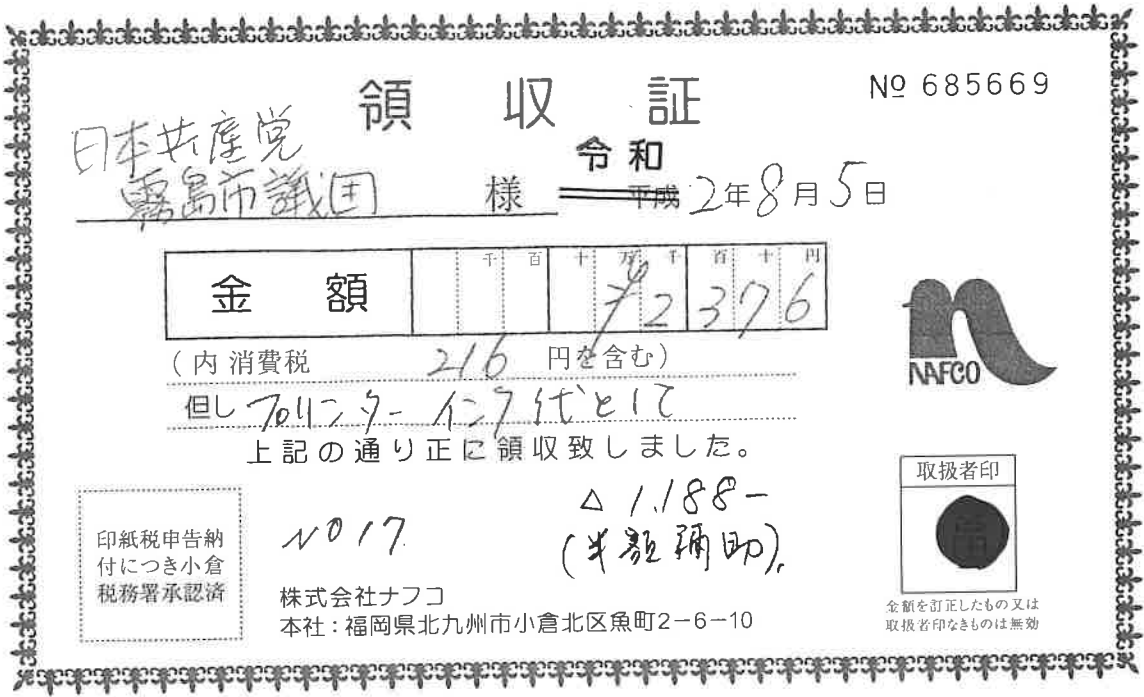 領収証
№ 685669
日本共産党
霧島市議団 様
令和
平成 2年8月5日
千 百 十 万 千 百 十 円
金額 ¥2376
(内消費税 216 円を含む)
但し プリンターインク代として
上記の通り正に領収致しました。
NAFCO
取扱者印
印紙税申告納
付につき小倉
税務署承認済
№17
△1,188-
(半額補助)
株式会社ナフコ
本社:福岡県北九州市小倉北区魚町2-6-10
金額を訂正したもの又は
取扱者印なきものは無効